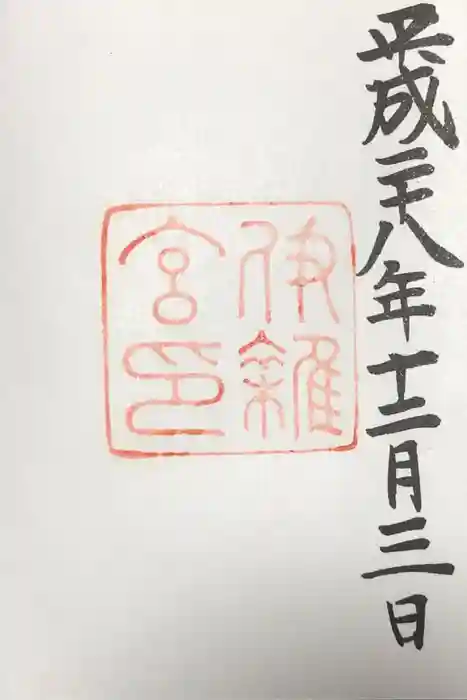 平成二十八年十二月三日
伊雜
宮印